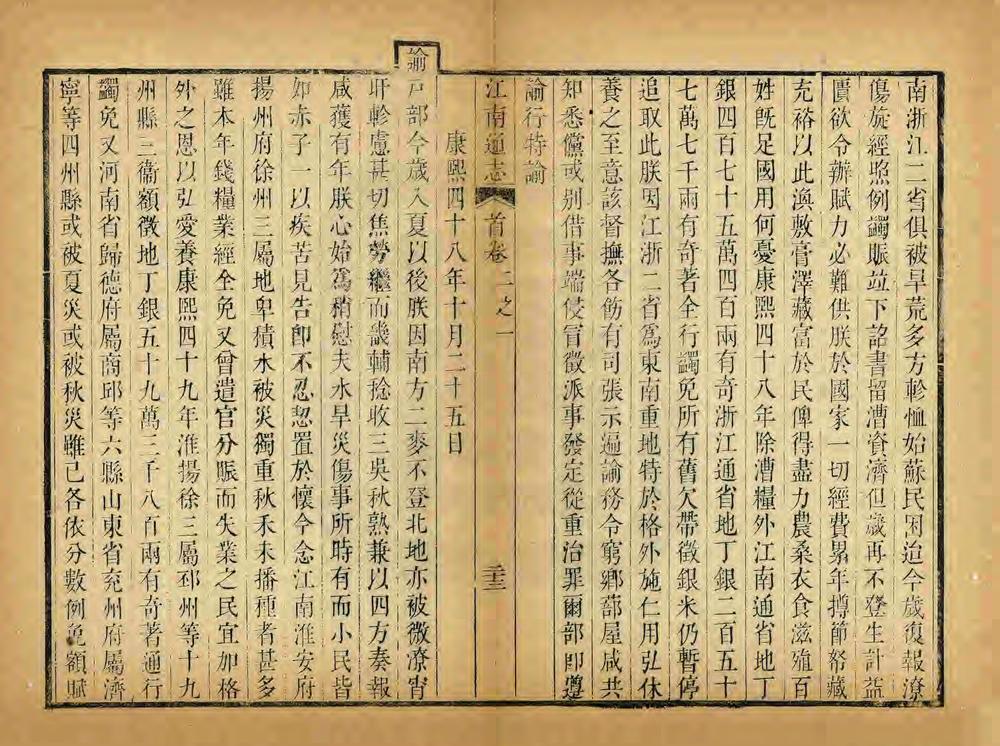 南浙江二省俱被旱荒多方軫恤始蘇民困迨今歲復報潦
傷旋經照例蠲賑竝下詔書留漕資濟但歲再不登生計益
匱欲令辦賦力必難供朕於國家一切經費累年撙節帑藏
充裕以此渙敷膏澤藏富於民俾得盡力農桑衣食滋殖百
姓旣足國用何憂康熙四十八年除漕糧外江南通省地丁
銀四百七十五萬四百兩有奇浙江通省地丁銀二百五十
七萬七千兩有奇著全行蠲免所有舊欠帶徵銀米仍暫停
追取此朕因江浙二省爲東南重地特於格外施仁用弘休
養之至意該督撫各飭有司張示遍諭務令窮鄉蔀屋咸共
知悉儻或別借事端侵冒徵派事發定從重治罪爾部卽遵
諭行特諭
江南通志 首卷二之一 三十三
康熙四十八年十月二十五日
諭戸部今歲入夏以後朕因南方二麥不登北地亦被微潦宵
旰軫慮甚切焦勞繼而畿輔稔收三吳秋熟兼以四方奏報
咸獲有年朕心始爲稍慰夫水旱災傷事所時有而小民皆
如赤子一以疾苦見告卽不忍恝置於懷今念江南淮安府
揚州府徐州三屬地卑積水被災獨重秋禾未播種者甚多
雖本年錢糧業經全免又曾遣官分賑而失業之民宜加格
外之恩以弘愛養康熙四十九年淮揚徐三屬邳州等十九
州縣三衞額徵地丁銀五十九萬三千八百兩有奇著通行
蠲免又河南省歸德府屬商邱等六縣山東省兖州府屬濟
寧等四州縣或被夏災或被秋災雖已各依分數例免額賦